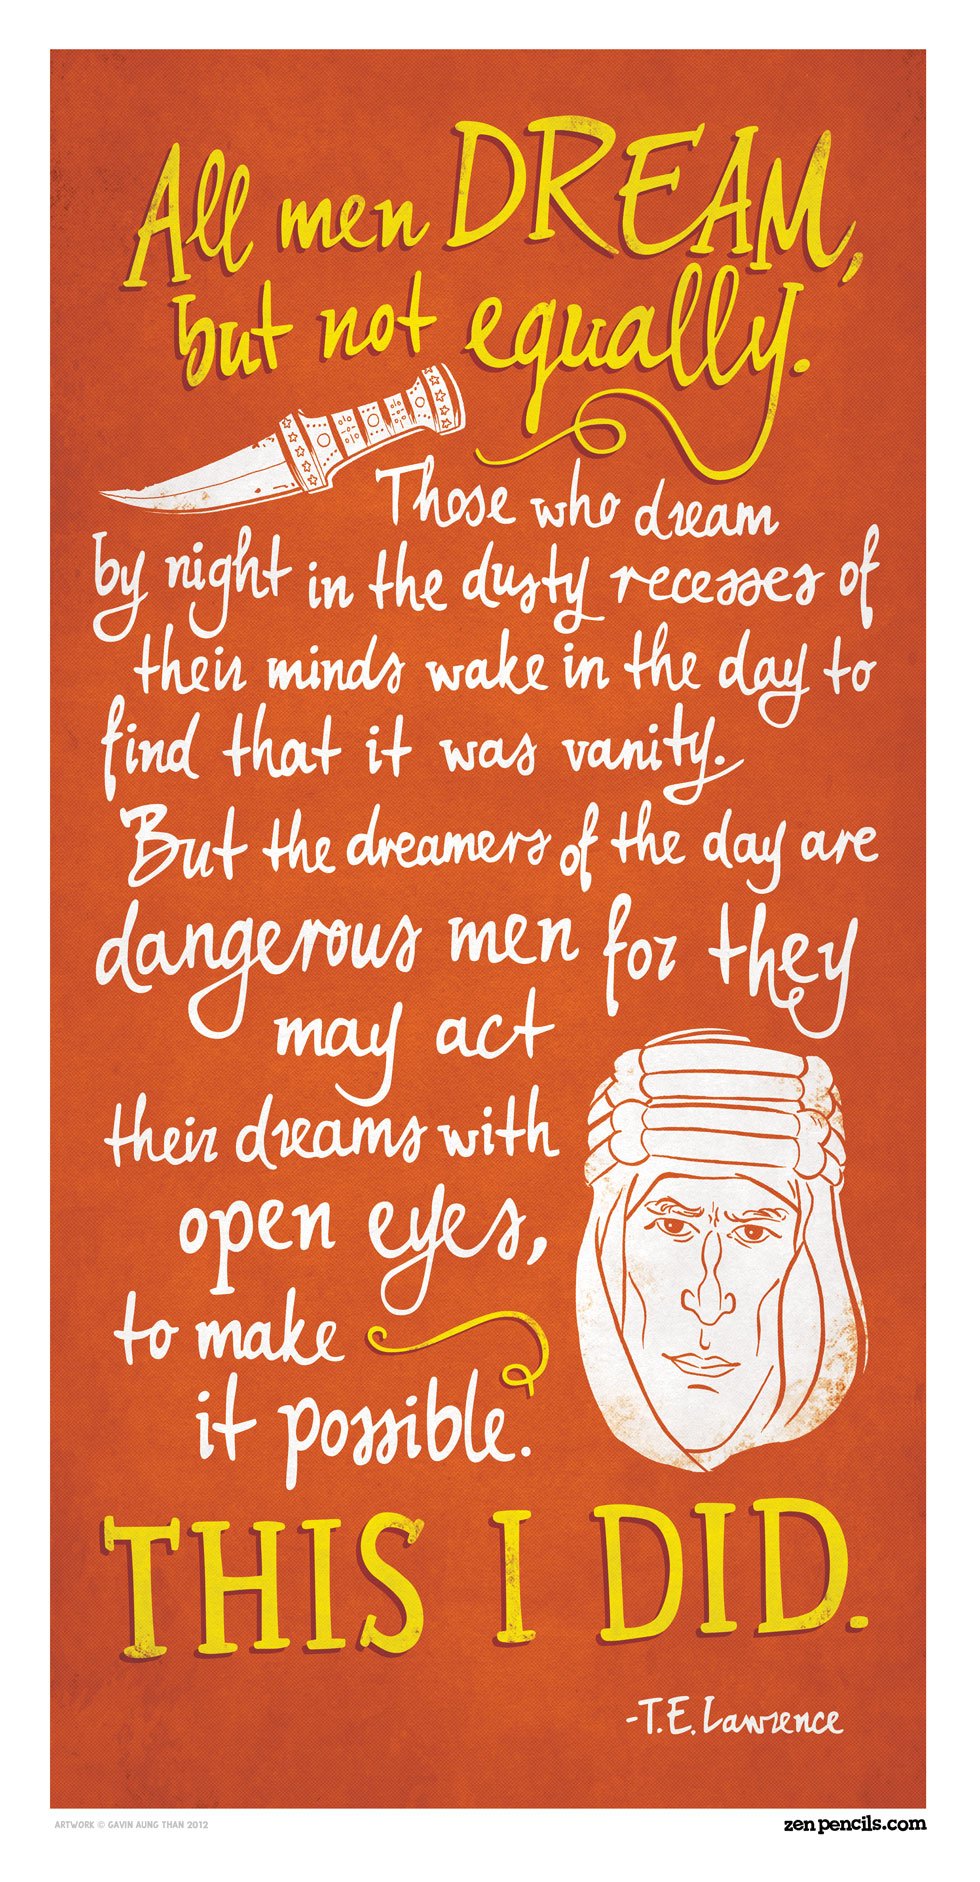 All men DREAM,
but not equally.
Those who dream
by night in the dusty recesses of
their minds wake in the day to
find that it was vanity.
But the dreamers of the day are
dangerous men for they
may act
their dreams with
open eyes,
to make
it possible.
THIS I DID.
-T.E. Lawrence
ARTWORK © GAVIN AUNG THAN 2012
zenpencils.com